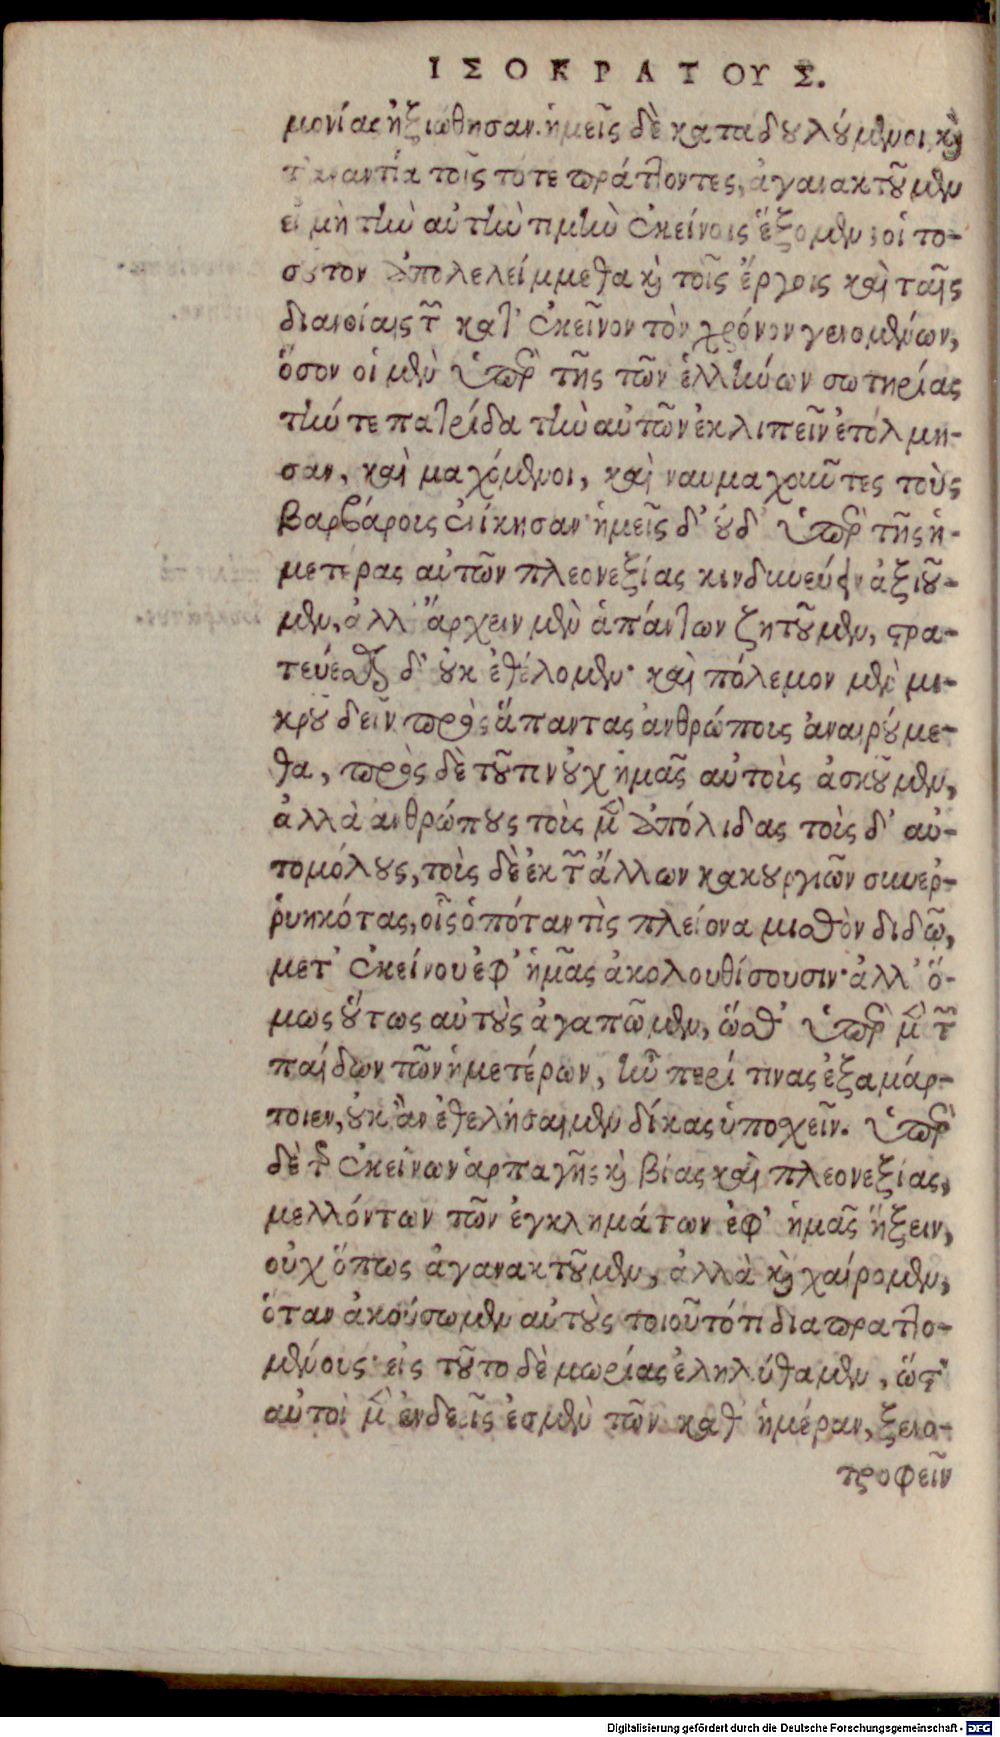 ΙΣΟΚΡΑΤΟΥΣ.
μονίας ἠξιώθησαν. ἡμεῖς δὲ καταδουλούμενοι, καὶ
τἀναντία τοῖς τότε πράττοντες, ἀγανακτοῦμεν
εἰ μὴ τὴν αὐτὴν τιμὴν ἐκείνοις ἕξομεν; οἱ το-
σοῦτον ἀπολελείμμεθα καὶ τοῖς ἔργοις καὶ ταῖς
διανοίαις τῶν κατ' ἐκεῖνον τὸν χρόνον γενομένων,
ὅσον οἱ μὲν ὑπὲρ τῆς τῶν ἑλλήνων σωτηρίας
τήν τε πατρίδα τὴν αὑτῶν ἐκλιπεῖν ἐτόλμη-
σαν, καὶ μαχόμενοι, καὶ ναυμαχοῦντες τοὺς
βαρβάρους ἐνίκησαν· ἡμεῖς δ' οὐδ' ὑπὲρ τῆς ἡ-
μετέρας αὐτῶν πλεονεξίας κινδυνεύειν ἀξιοῦ-
μεν, ἀλλ' ἄρχειν μὲν ἁπάντων ζητοῦμεν, στρα-
τεύεσθαι δ' οὐκ ἐθέλομεν· καὶ πόλεμον μὲν μι-
κροῦ δεῖν πρὸς ἅπαντας ἀνθρώπους ἀναιρούμε-
θα, πρὸς δὲ τοῦτον οὐχ ἡμᾶς αὐτοὺς ἀσκοῦμεν,
ἀλλὰ ἀνθρώπους τοὺς μὲν ἀπόλιδας τοὺς δ' αὐ-
τομόλους, τοὺς δὲ ἐκ τῶν ἄλλων κακουργιῶν συνερ-
ρυηκότας, οἷς ὁπόταν τὶς πλείονα μισθὸν διδῷ,
μετ' ἐκείνου ἐφ' ἡμᾶς ἀκολουθήσουσιν· ἀλλ' ὅ-
μως οὕτως αὐτοὺς ἀγαπῶμεν, ὥσθ' ὑπὲρ μὲν τῶν
παίδων τῶν ἡμετέρων, ἢν περί τινας ἐξαμάρ-
τοιεν, οὐκ ἂν ἐθελήσαιμεν δίκας ὑποχεῖν. ὑπὲρ
δὲ τῆς ἐκείνων ἁρπαγῆς καὶ βίας καὶ πλεονεξίας,
μελλόντων τῶν ἐγκλημάτων ἐφ' ἡμᾶς ἥξειν,
οὐχ ὅπως ἀγανακτοῦμεν, ἀλλὰ καὶ χαίρομεν,
ὅταν ἀκούσωμεν αὐτοὺς τοιοῦτό τι διαπραττο-
μένους· εἰς τοῦτο δὲ μωρίας ἐληλύθαμεν, ὥστ'
αὐτοὶ μὲν ἐνδεεῖς ἐσμὲν τῶν καθ' ἡμέραν, ξενο-
τροφεῖν
Digitalisierung gefördert durch die Deutsche Forschungsgemeinschaft - DFG